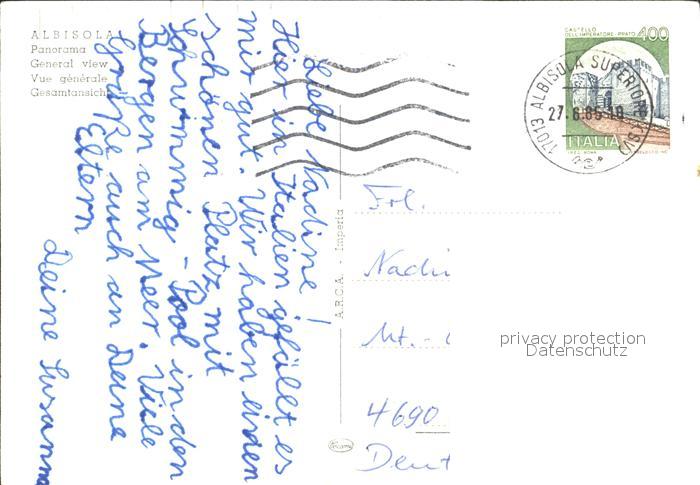 ALBISOLA
Panorama
General view
Vue générale
Gesamtansicht
Liebe Nadine!
Hier in Italien gefällt es
mir gut. Wir haben einen
schönen Platz mit
Schwimmig-Pool in den
Bergen am Meer. Viele
Grüße auch an Deine
Eltern
Deine Susann
A.R.C.A. - Imperia
CASTELLO
DELL'IMPERATORE - PRATO
400
ITALIA
17013 ALBISOLA SUPERIORE (SV)
Frl.
Nadi
Mt.-
4690
Deut
privacy protection
Datenschutz